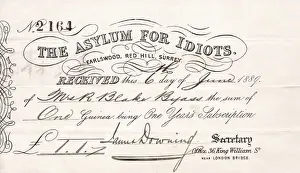 N. 2164
THE ASYLUM FOR IDIOTS,
EARLSWOOD, RED HILL, SURREY.
RECEIVED this 6th day of June 1889.
of Mrs R Blake Byass the sum of
One Guinea being One Year's Subscription
£1.1.- James Downing Secretary
Office, 36 King William St
NEAR LONDON BRIDGE.